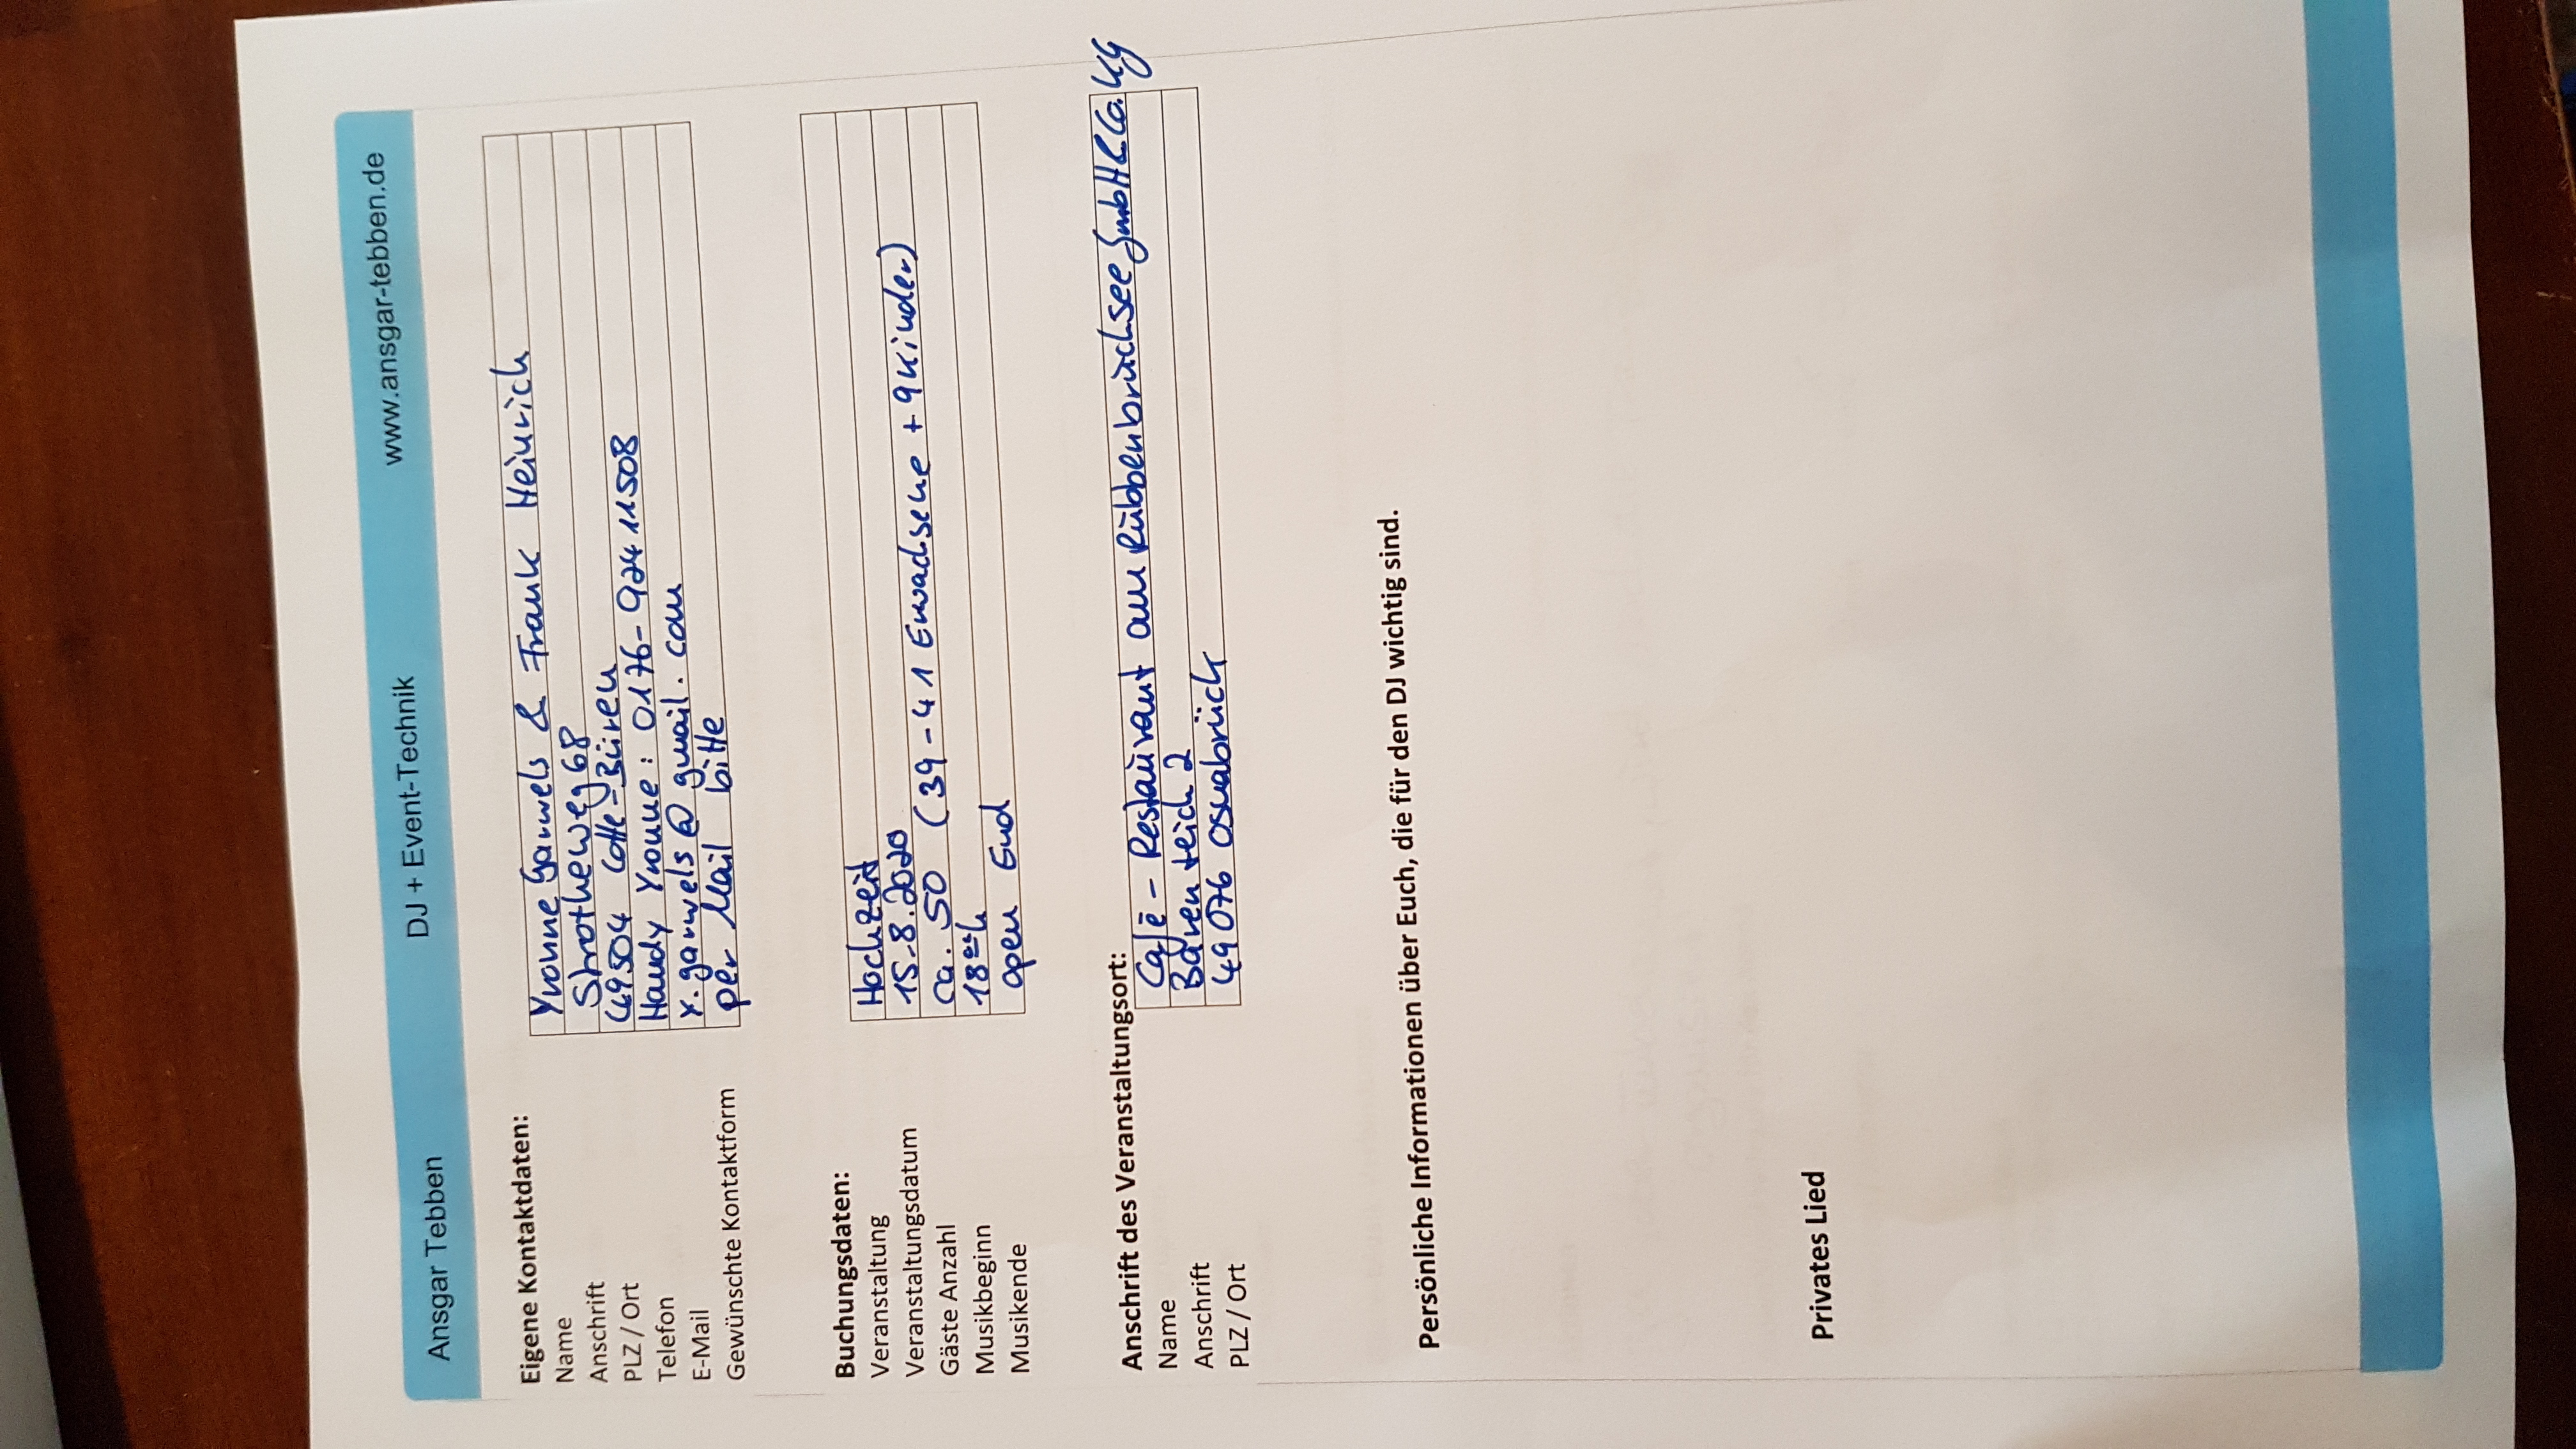 Ansgar Tebben DJ + Event-Technik www.ansgar-tebben.de
Eigene Kontaktdaten:
Name Yvonne Garwels & Frank Heinrich
Anschrift Strotheweg 68
PLZ / Ort 49504 Lotte-Büren
Telefon Handy Yvonne: 0176-92411508
E-Mail y.garwels@gmail.com
Gewünschte Kontaktform per Mail bitte
Buchungsdaten:
Veranstaltung Hochzeit
Veranstaltungsdatum 15.8.2020
Gäste Anzahl ca. 50 (39-41 Erwachsene + 9 Kinder)
Musikbeginn 18 h
Musikende open End
Anschrift des Veranstaltungsort:
Name Café - Restaurant am Rubbenbruchsee GmbH & Co. KG
Anschrift Barenteich 2
PLZ / Ort 49076 Osnabrück
Persönliche Informationen über Euch, die für den DJ wichtig sind.
Privates Lied